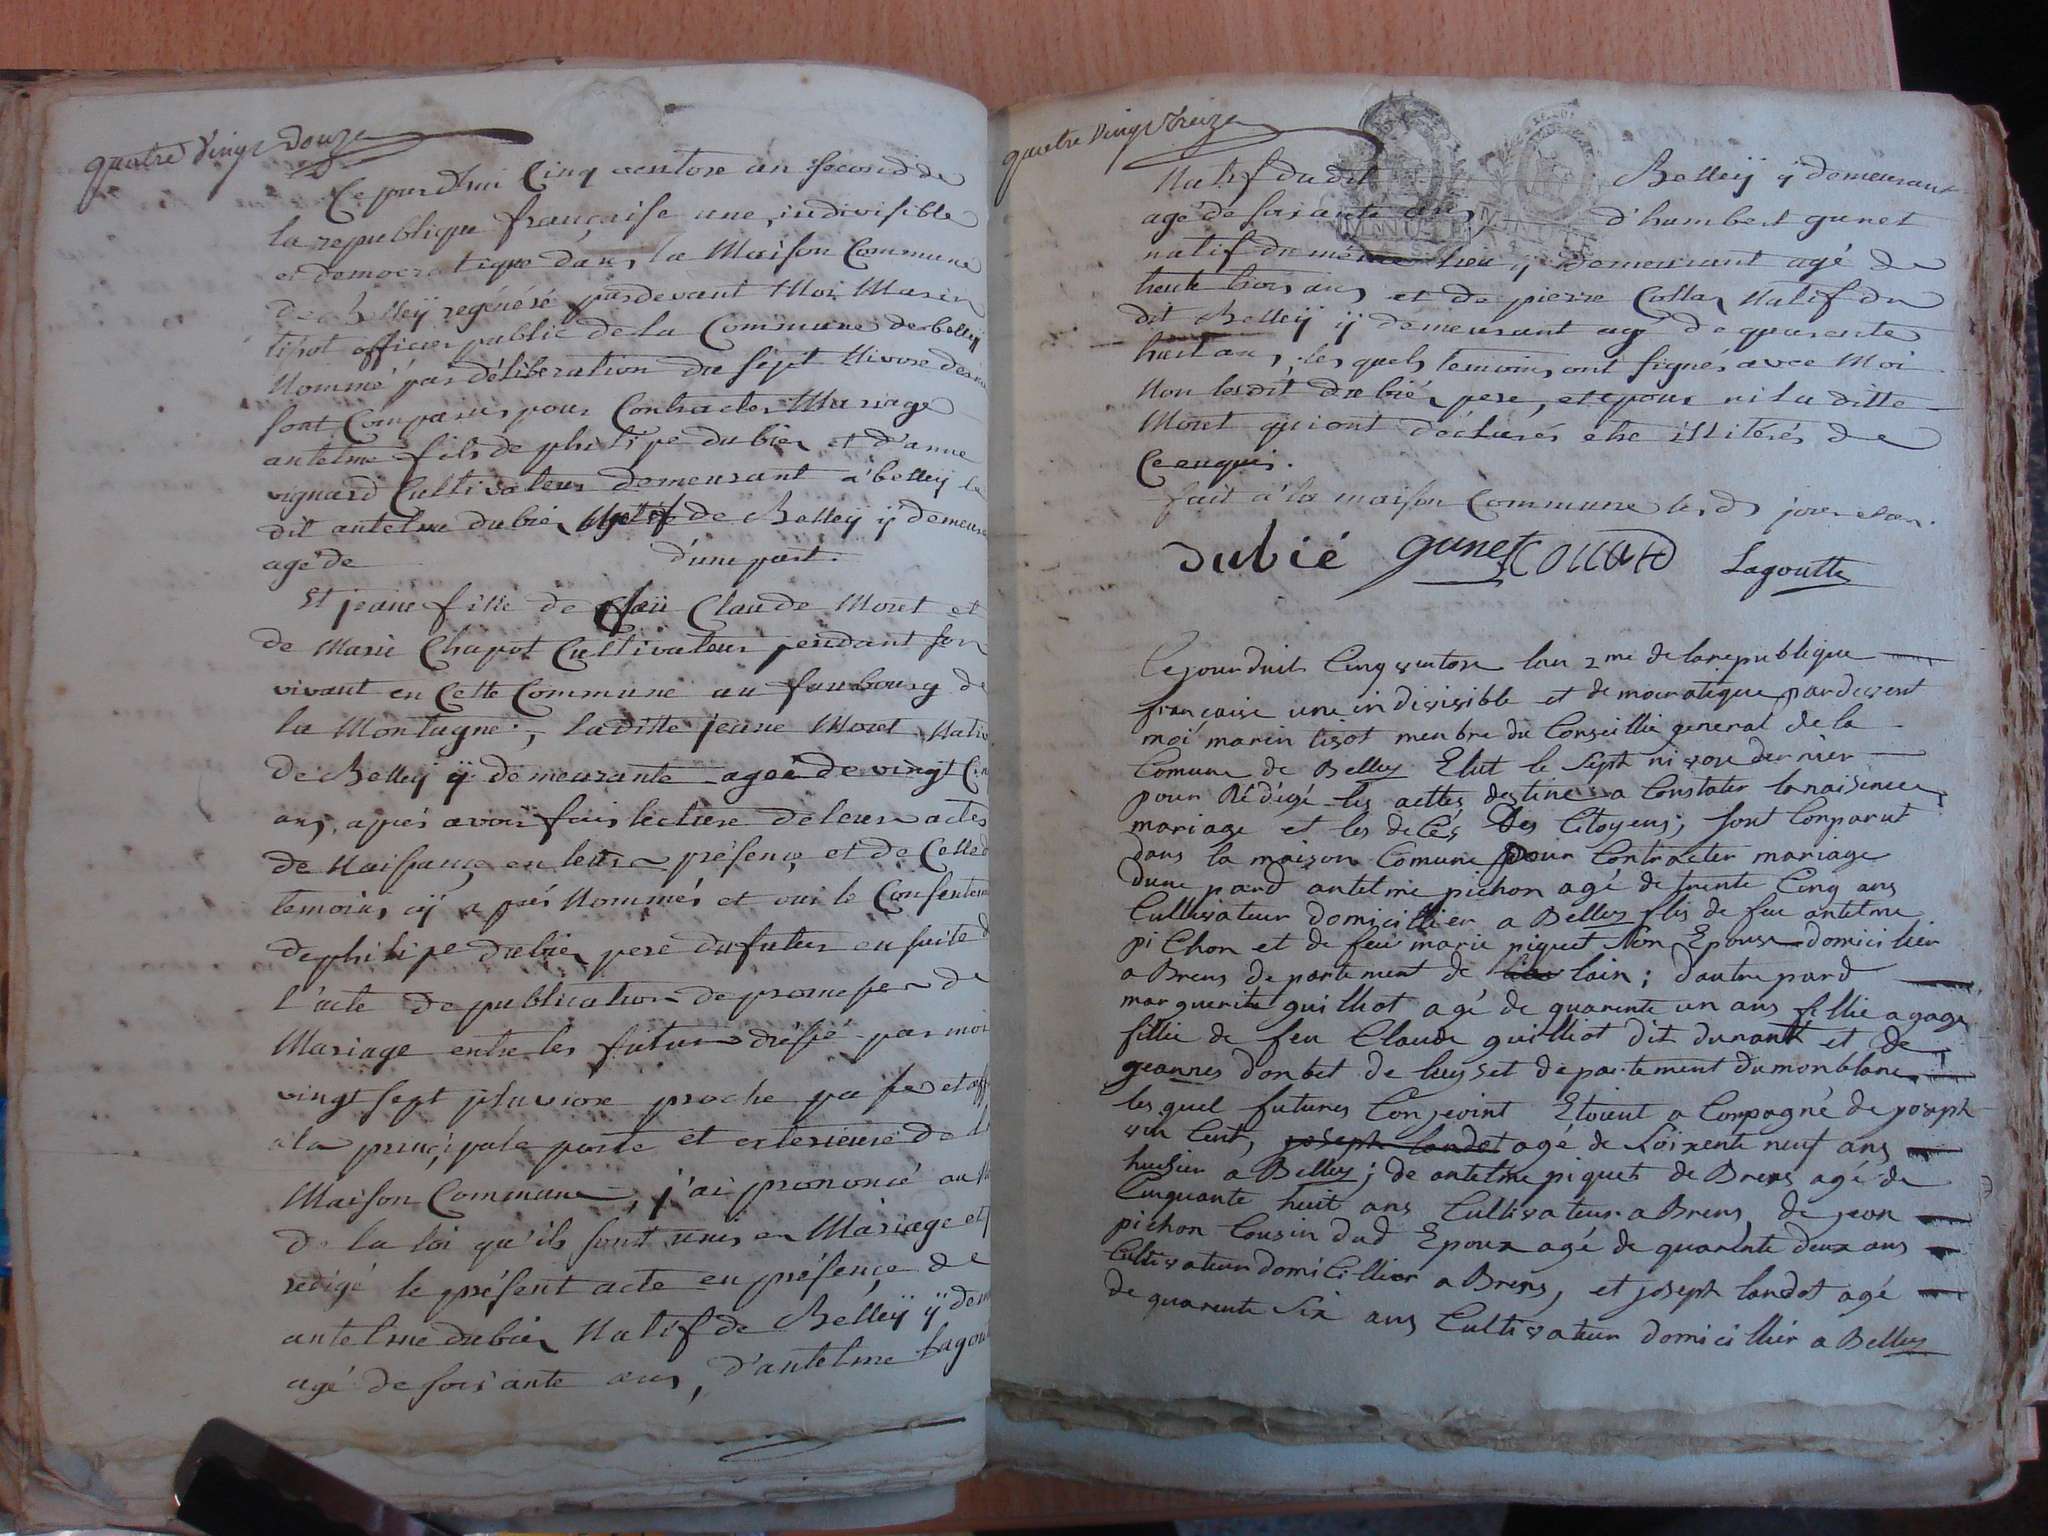 quatre vingt douze
Ce jourdhui Cinq ventose an second de
la republique française une, indivisible
et democratique dans la Maison Commune
de Belleÿ regénéré pardevant Moi Marin
tisot officier public de la Commune de belleÿ
Nommé par déliberation du sept Nivose
sont Comparus pour Contracter Mariage
antelme fils de philipe dubier et d'anne
vignard Cultivateur demeurant a belleÿ le
dit antelme dubier Natif de Belleÿ ÿ
agé de d'une part.
Et jeane fille de Claude Moret et
de Marie Chapot Cultivateur pendant son
vivant en Cette Commune au fauboug de
la Montagne, laditte jeane Moret
de Belleÿ ÿ demeurante ageé de vingt
ans, apres avoir fais lecture de leur actes
de Naissance en leur présence et de
temoins cÿ après Nommés et oui le
de philipe dubier pere du futur en suite
l'acte de publication de promesse de
Mariage entre les futurs dressé par moi
vingt sept pluviose proche passé et
a la principale porte et exterieure de
Maison Commune, j'ai prononcé au
de la loi qu'ils sont unis en Mariage et
redigé le présent acte en présence de
antelme dubier Natif de Belleÿ ÿ
agé de soisante ans, d'antelme
quatre vingt treize
Natif du dit Belleÿ ÿ demeurant
agé de soisante ans, d'humbert gunet
MINUTE
natif du même lieu ÿ demeurant agé de
trente trois ans et de pierre Collar Natif du
dit Belleÿ ÿ demeurant agé de quarente
huit ans, les quels temoins ont signés avec Moi
Non lesdit dubier pere, et epoux ni la ditte
Moret qui ont déclarés etre illitérés de
Ce enquis.
fait a la maison Commune lesd jour et an.
dubié gunet COLLARD Lagoutte
Ce jourduit Cinq ventose lan 2me de la republique
française une indivisible et democratique pardevent
moi marin tisot menbre du Conseillie general de la
Comune de Belley Elut le Sept nivose dernier
pour Rédigé les acttes destine a Constater la naisence
mariage et les decés Des Citoyens; sont Conparut
dans la maison Comune pour Contracter mariage
dune pard antelme pichon agé de trente Cinq ans
Cultivateur domicillier a Belley fils de feu antelme
pichon et de feu marie piquet Son Epouse domicilier
a Brens departement de lain; dautre pard
marguerite guilliot agé de quarente un ans fillie a gage
fillie de feu Claude guilliot dit dunant et de
geannes donbet de departement du monblanc
lesquel futures Conjoint Etoient a Conpagné de joseph
vin Cent, joseph landot agé de soixente neuf ans
huisier a Belley; de antelme piquet de Brens agé de
Cinquante huit ans Cultivateur a Brens, de jean
pichon Cousin dud Epoux agé de quarente deux ans
Cultivateur domicillier a Brens, et joseph landot agé
de quarente Six ans Cultivateur domicillier a Belley